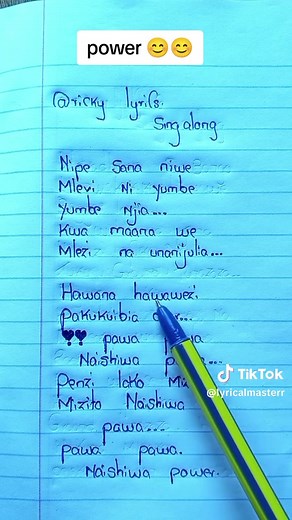 power 😊😊
@ricky lyrics.
Sing along
Nipe sana niwe
Mlevi Ni yumbe
yumbe Njia...
Kwa maana we
Mlezi na unanijulia...
Hawana hawawezi
Pakukuibia
❣❣ pawa
Naishiwa
Penzi lako
Mizito Naishiwa
pawa...
pawa pawa.
Naishiwa power.
TikTok
@lyricalmasterr